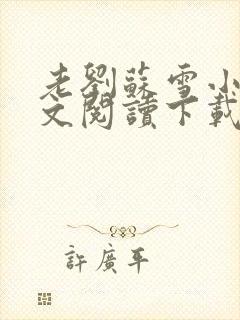 老劉蘇雪小
文閱讀下載
許廣平